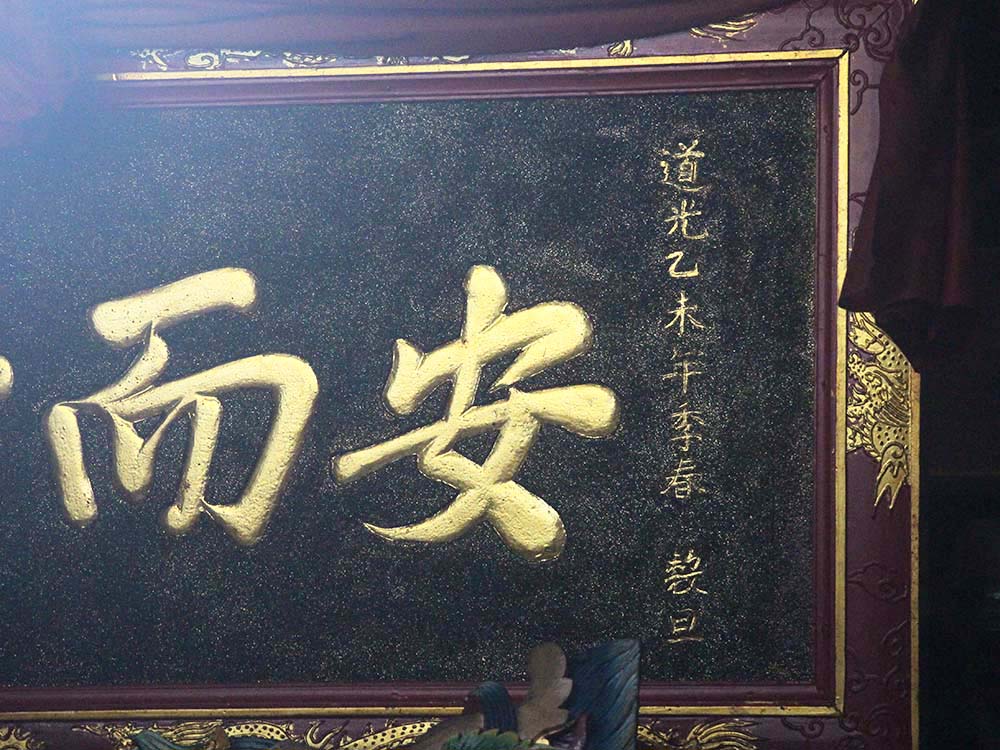 道光乙未年季春 穀旦
安而